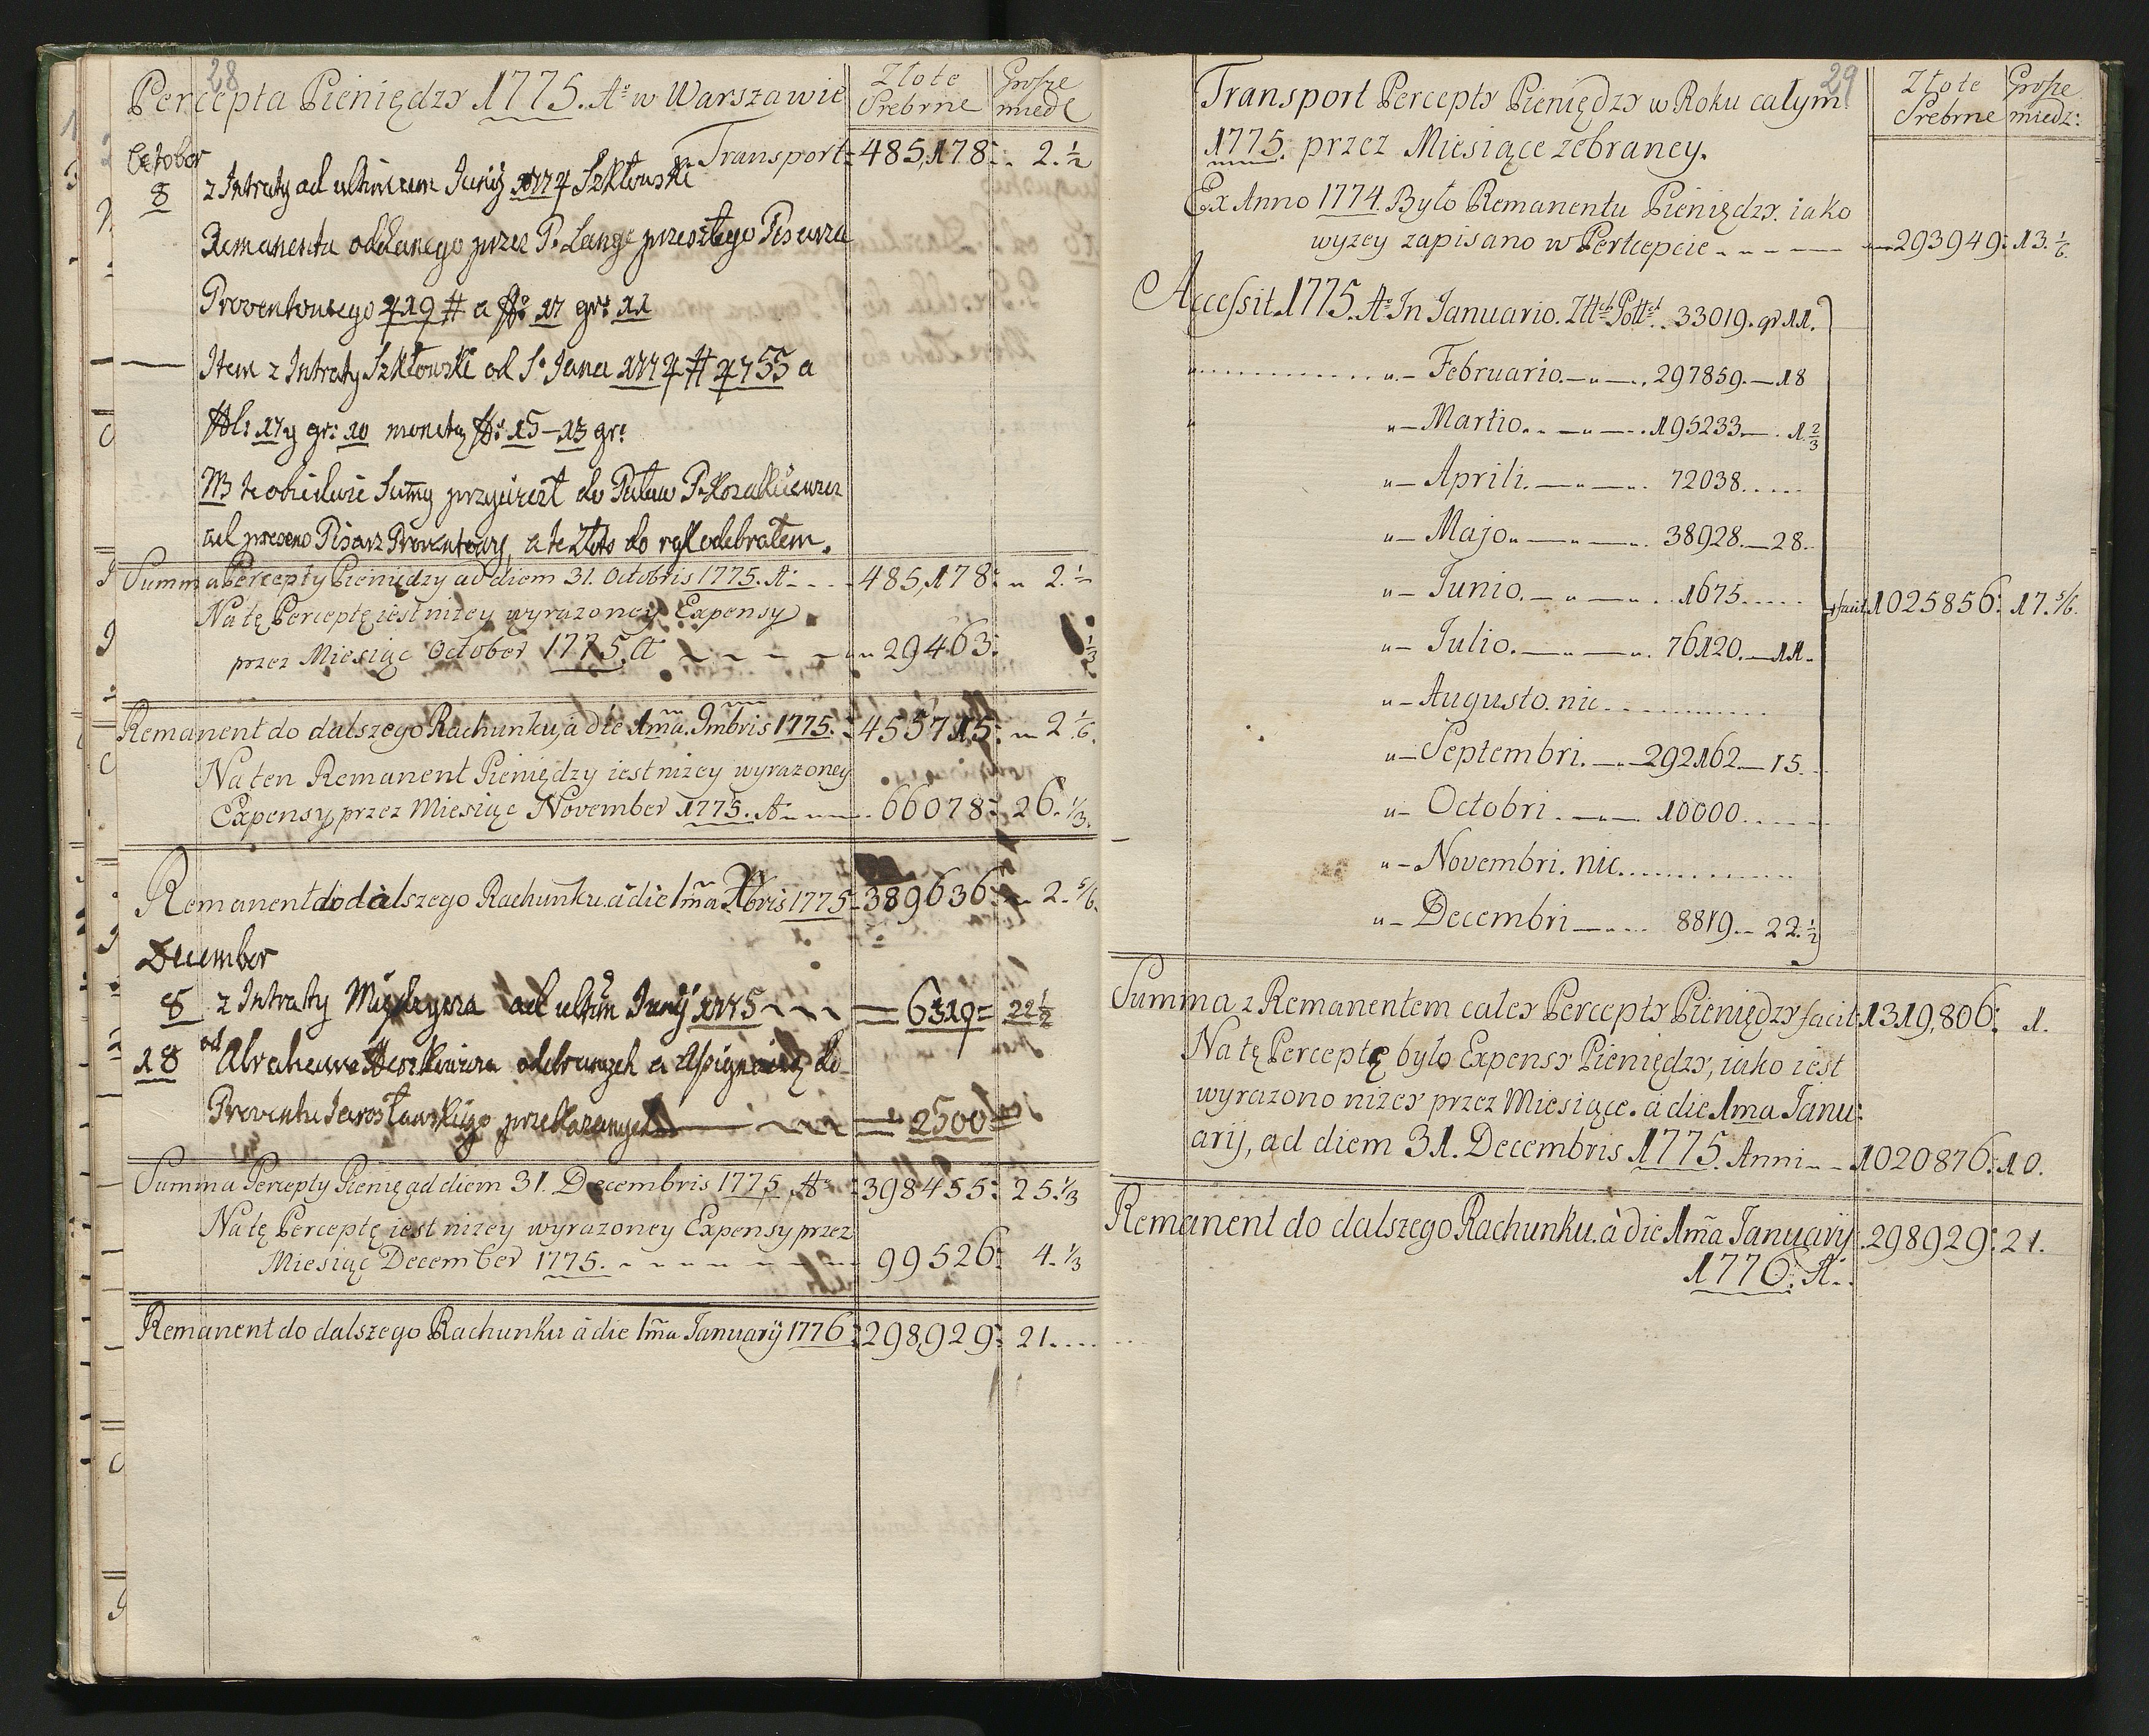 28
Percepta Pieniędzy 1775. Aº w Warszawie
Złote Srebrne
Grosze miedz
Transport 485,178: 2.½
October
8 z Intraty ad ultimum Junij 1774 Szkłowski
Remanentu oddanego przez P. Lange przeszłego Pisarza
Proventowego 419 # a fº 17 grs 11
Item z Intraty Szkłowski od S. Jana 1774 # 4755 a
gr: 10 monetą fº: 15-13 gr:
NB te obiedwie Summy przywiozł do Puław P. Kozakiewicz
Pisarz Proventowy, a te Złoto do rąk odebrałem.
Summa Percepty Pieniędzy ad diem 31. Octobris 1775. Aº - - - 485,178: „ 2.½
Na tę Perceptę iest nizey wyrazoney Expensy
przez Miesiąc October 1775. A 29463: ⅓
Remanent do dalszego Rachunku, à die 1ma. 9mbris 1775. 455715: „ 2 ⅙.
Na ten Remanent Pieniędzy iest nizey wyrazoney
Expensy, przez Miesiąc November 1775. Aº 66078: 26.⅓.
Remanent do dalszego Rachunku. à die 1ma Xbris 1775 389636: „ 2.⅚.
December
8 z Intraty Międzyrza ad ultim Junij 1775 = 6319 = 22½
18 od Abrahama Herszkowicza odebranych a Assignacią do
Proventu Jarosławskiego przekazanych = 2500 =
Summa Percepty Pienię ad diem 31. Decembris 1775, Aº 398455: 25.⅓
Na tę Perceptę iest nizey wyrazoney Expensy przez
Miesiąc December 1775. 99526: 4.⅓
Remanent do dalszego Rachunku à die 1ma Januarij 1776: 298,929: 21....
29
Transport Percepty Pieniędzy w Roku całym
Złote Srebrne
Grosze miedz:
1775. przez Miesiące zebraney.
Ex Anno 1774. Było Remanentu Pieniędzy. iako
wyzey zapisano w Pertcepcie - - - 293949: 13.⅙.
Accessit. 1775. Aº In Januario. 33019. gr 11.
„ - Februario. 297859. — 18
„ - Martio. 195233. — . 1.⅔
„ - Aprili. 72038.....
„ - Majo 38928. — 28.
„ - Junio. 1675.....
facit 1025856: 17.⅚.
„ - Julio. 76120. — 11.
„ - Augusto. nic.
„ - Septembri. 292162. — 15.
„ - Octobri. 10000.
„ - Novembri. nic.
„ - Decembri 8819. — 22.½
Summa z Remanentem całey Percepty Pieniędzy facit 1319,806: 1.
Na tę Perceptę było Expensy Pieniędzy, iako iest
wyrazono nizey przez Miesiące. à die 1ma Janu:
arij, ad diem 31. Decembris 1775. Anni - - 1020876: 10.
Remanent do dalszego Rachunku. à die 1ma Januarij 298929: 21.
1776. A.